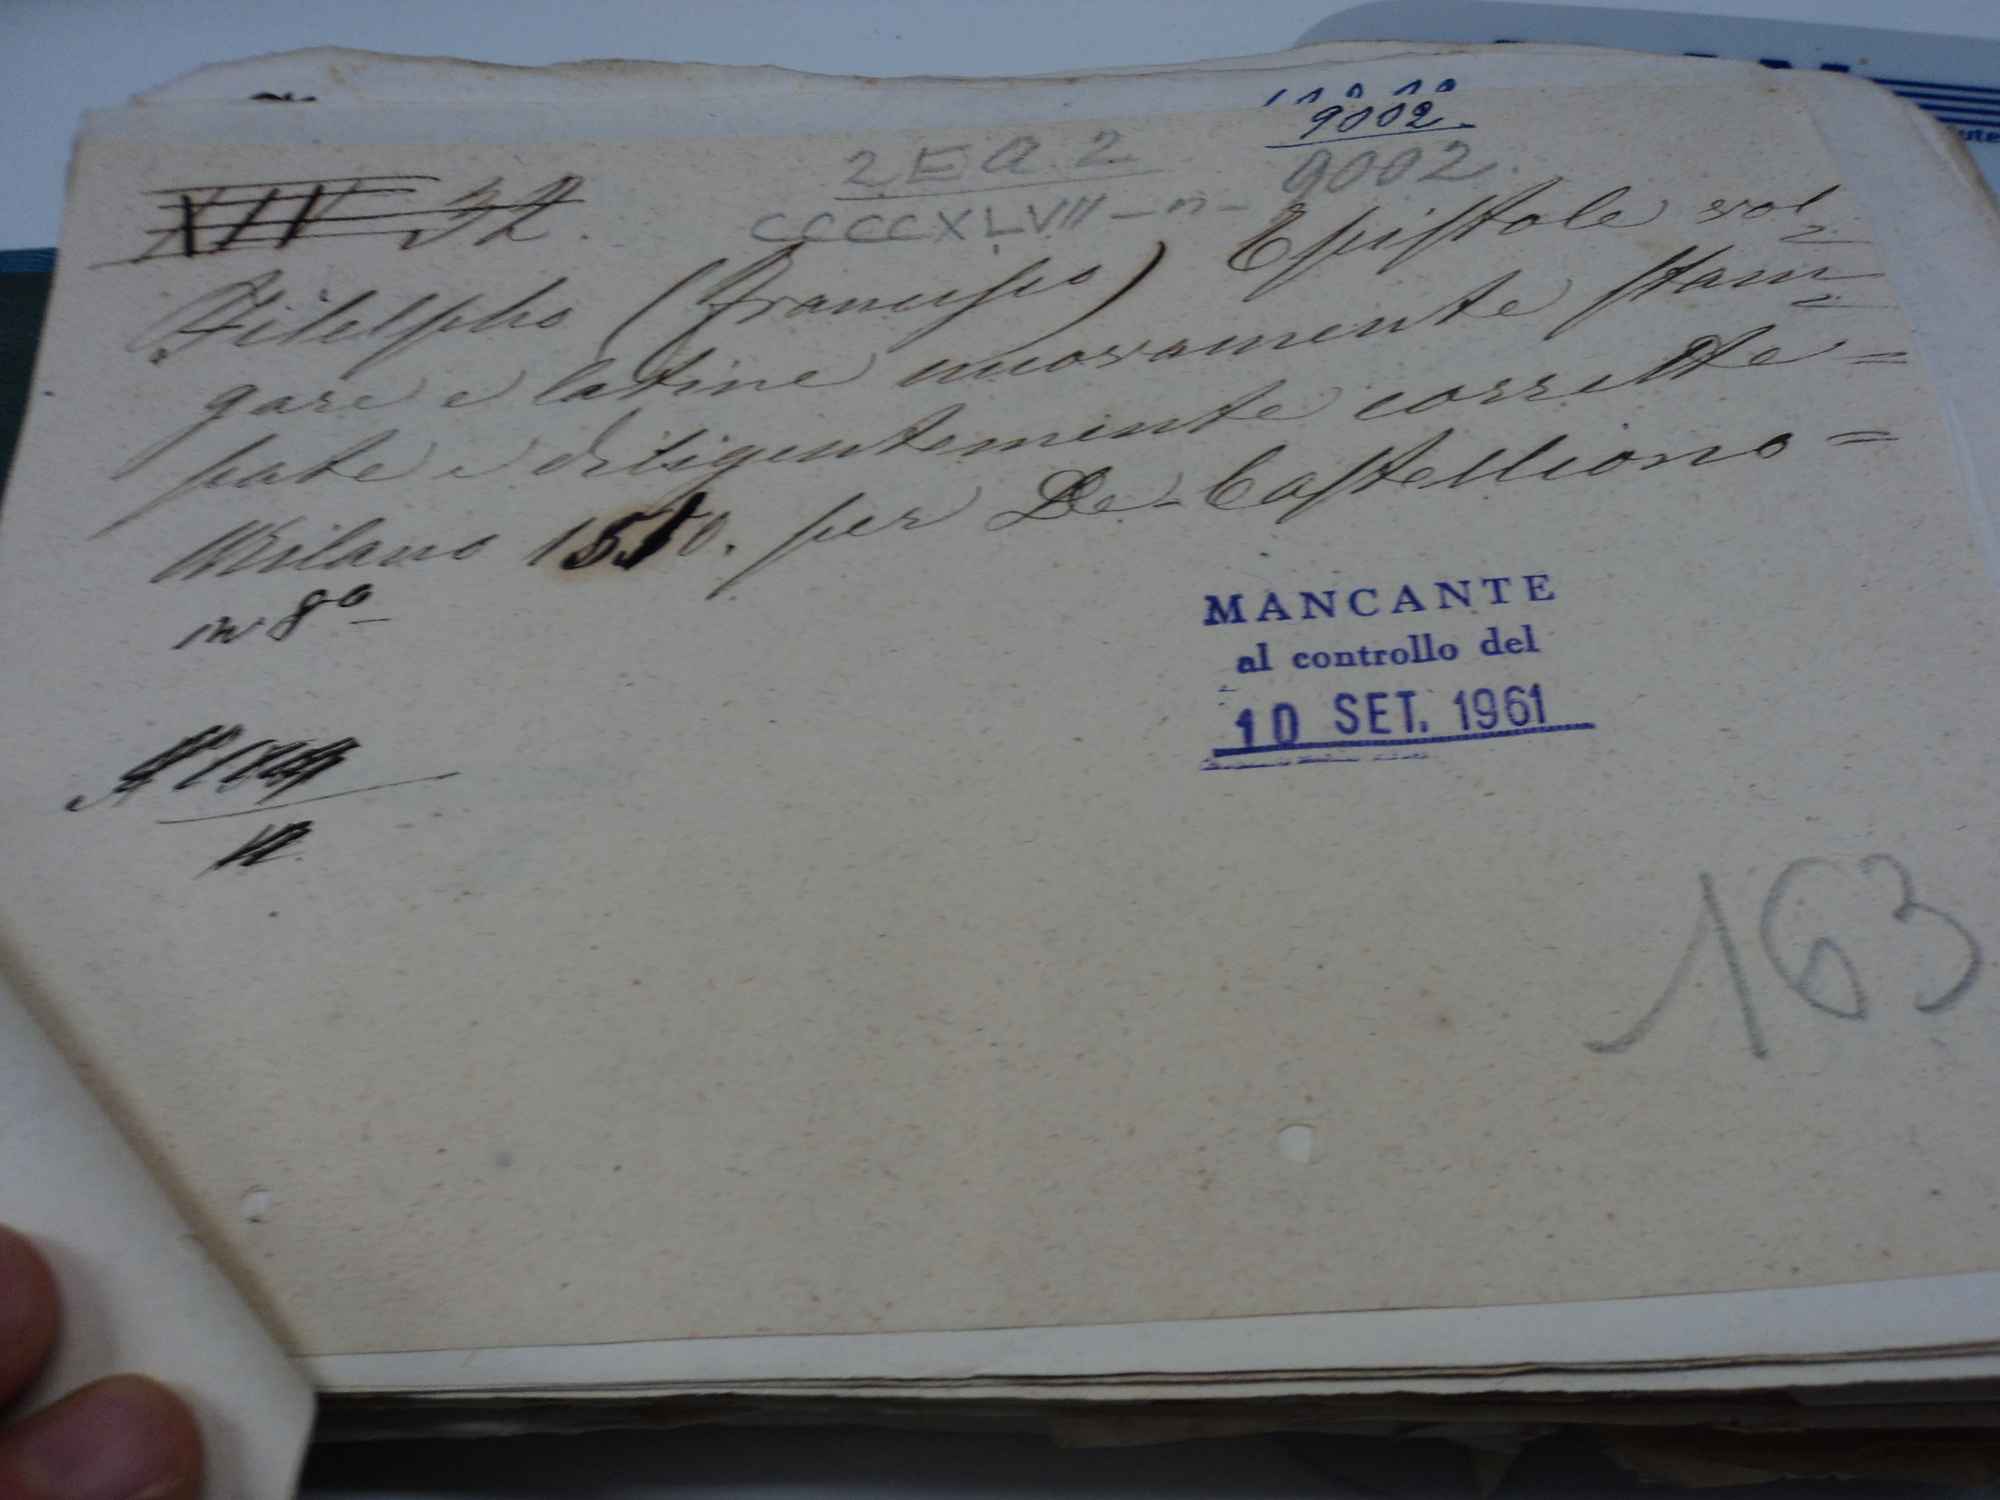 9002.
2 E a. 2 9002.
32. CCCCXLVII - n -
Filelpho (Francisco) Epistole vol=
gare e latine nuovamente stam=
pate e diligentemente corrette =
Milano 1510. per De-Castelliono =
in 8º
MANCANTE
al controllo del
10 SET. 1961
163